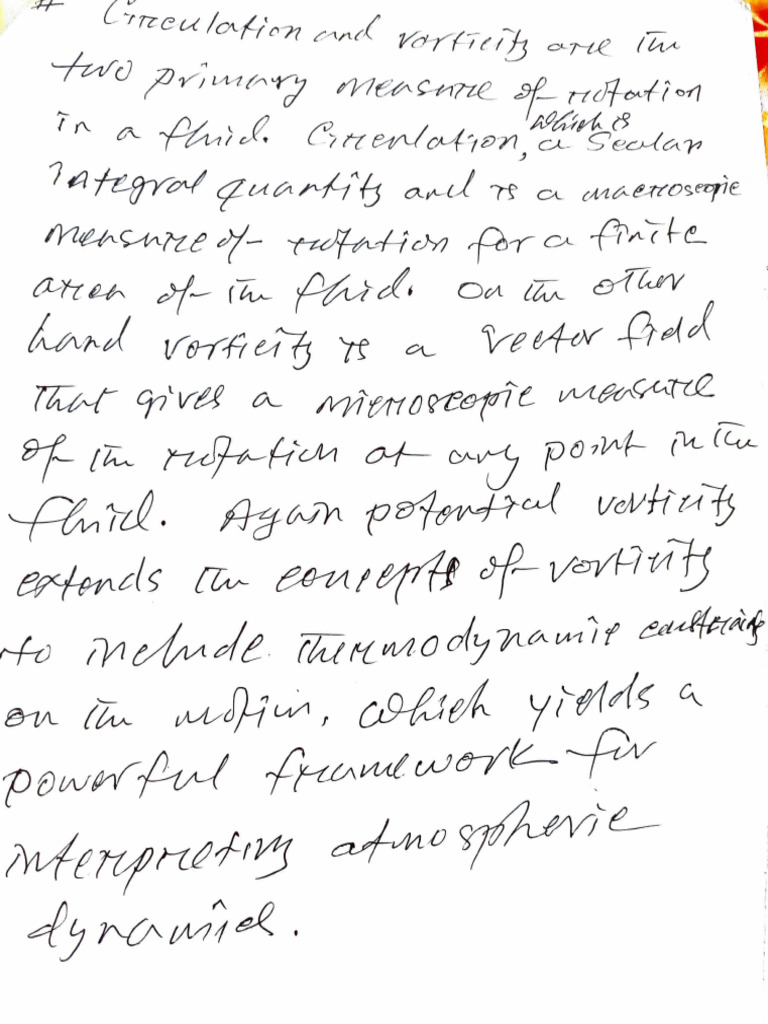 # Circulation and vorticity are the
two primary measure of rotation
in a fluid. Circulation, which is a Scalar
integral quantity and is a macroscopic
measure of rotation for a finite
area of the fluid. On the other
hand vorticity is a vector field
that gives a microscopic measure
of the rotation at any point in the
fluid. Again potential vorticity
extends the concepts of vorticity
to include thermodynamic constraints
on the motion, which yields a
powerful framework for
interpreting atmospheric
dynamics.